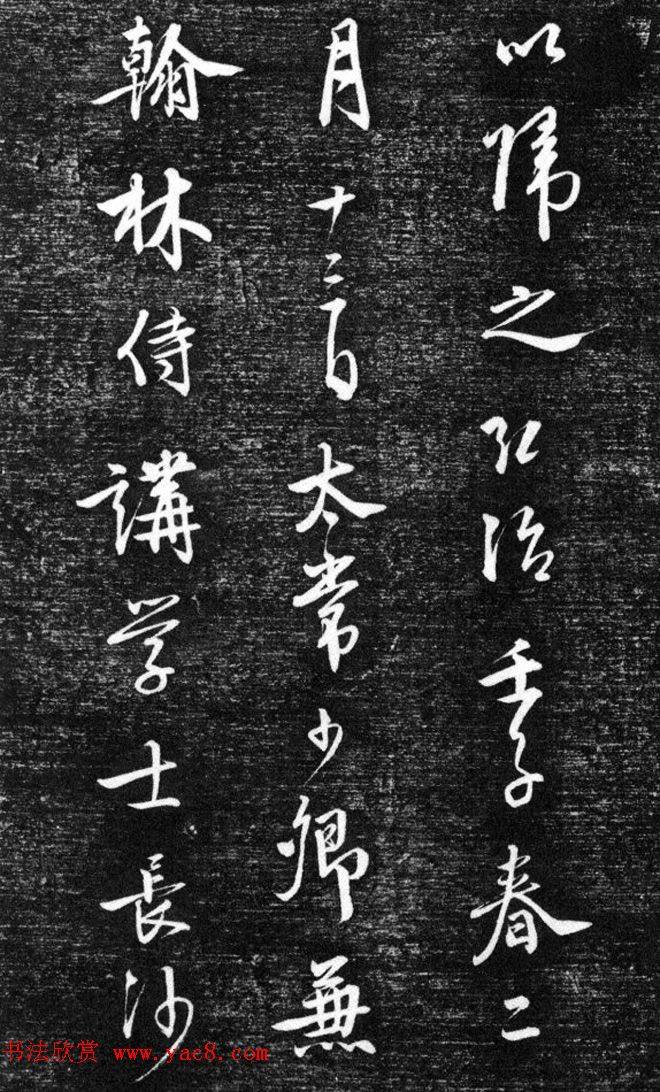 以歸之弘治壬子春二
月十三日太常少卿兼
翰林侍講学士長沙
书法欣赏 www.yac8.com